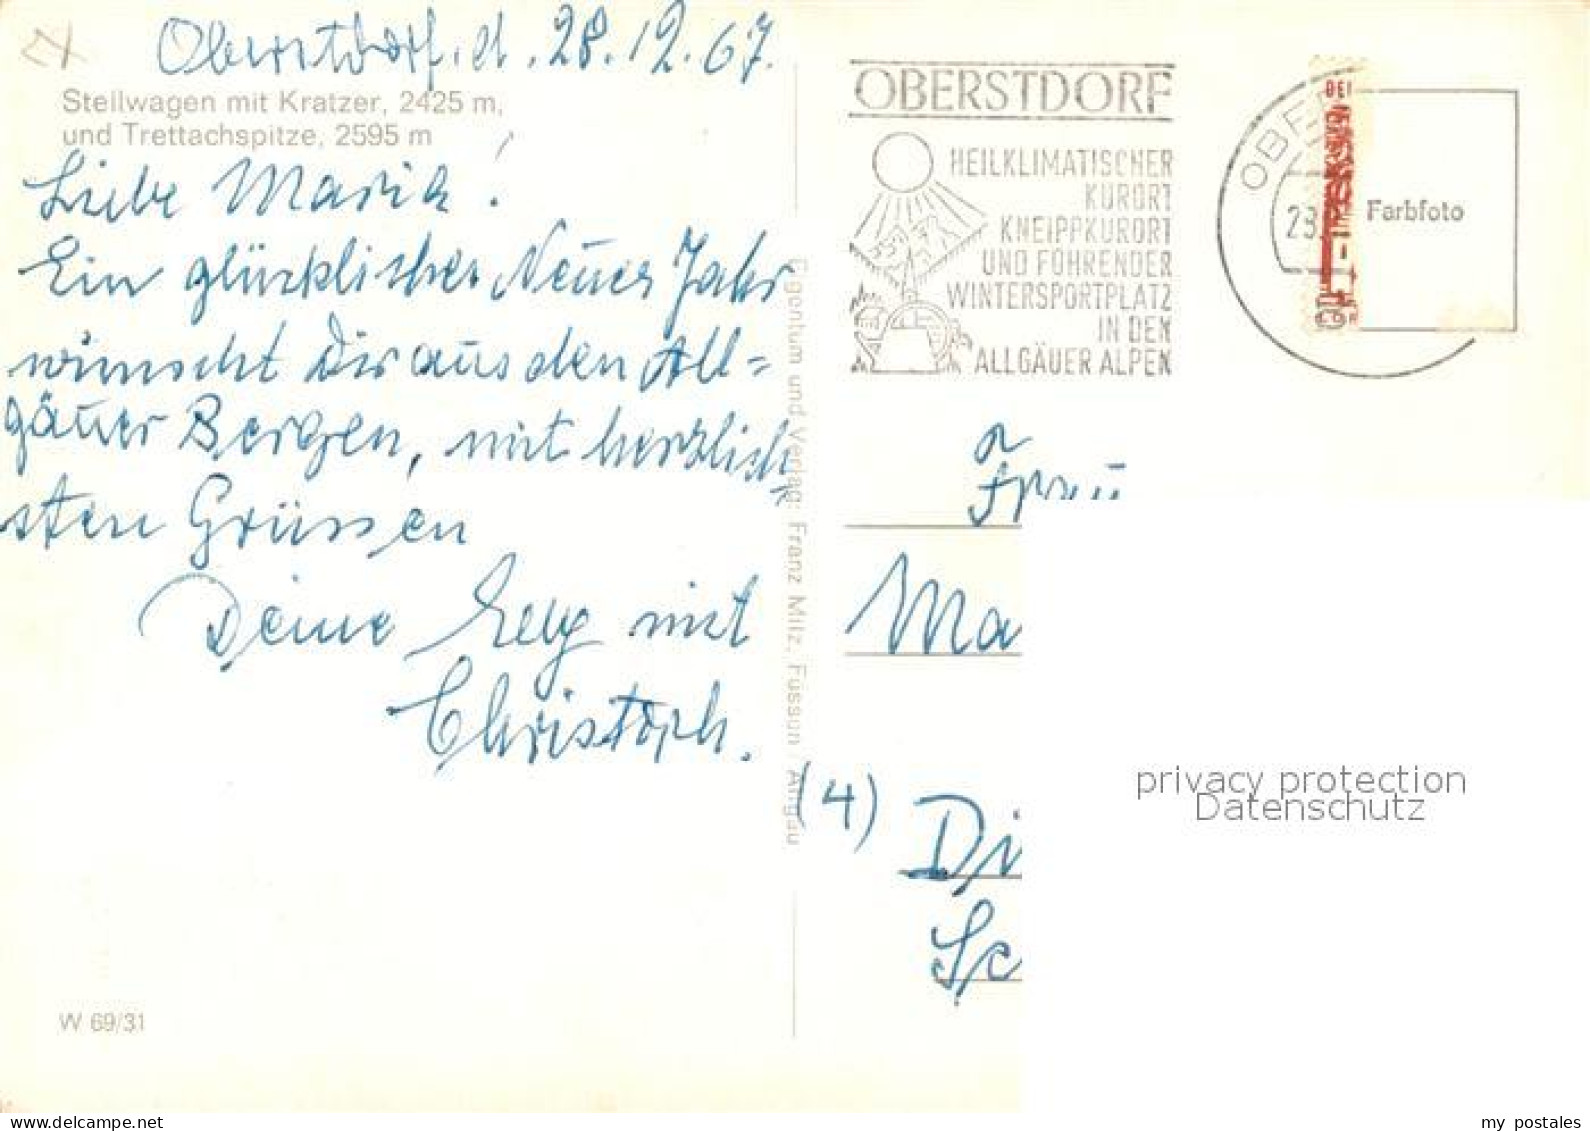 Oberstdorf, d. 28.12.67.
Stellwagen mit Kratzer, 2425 m,
und Trettachspitze, 2595 m
Liebe Maria!
Ein glückliches Neues Jahr
wünscht Dir aus den All=
gäuer Bergen, mit herzlich
sten Grüssen
Deine Elly mit
Christoph.
W 69/31
Eigentum und Verlag: Franz Milz, Füssen Allgäu
OBERSTDORF
HEILKLIMATISCHER
KURORT
KNEIPPKURORT
UND FÜHRENDER
WINTERSPORTPLATZ
IN DEN
ALLGÄUER ALPEN
OBE
28.
DEU
Farbfoto
Frau
Ma
(4) Di
Sc
privacy protection
Datenschutz
my postales
www.delcampe.net